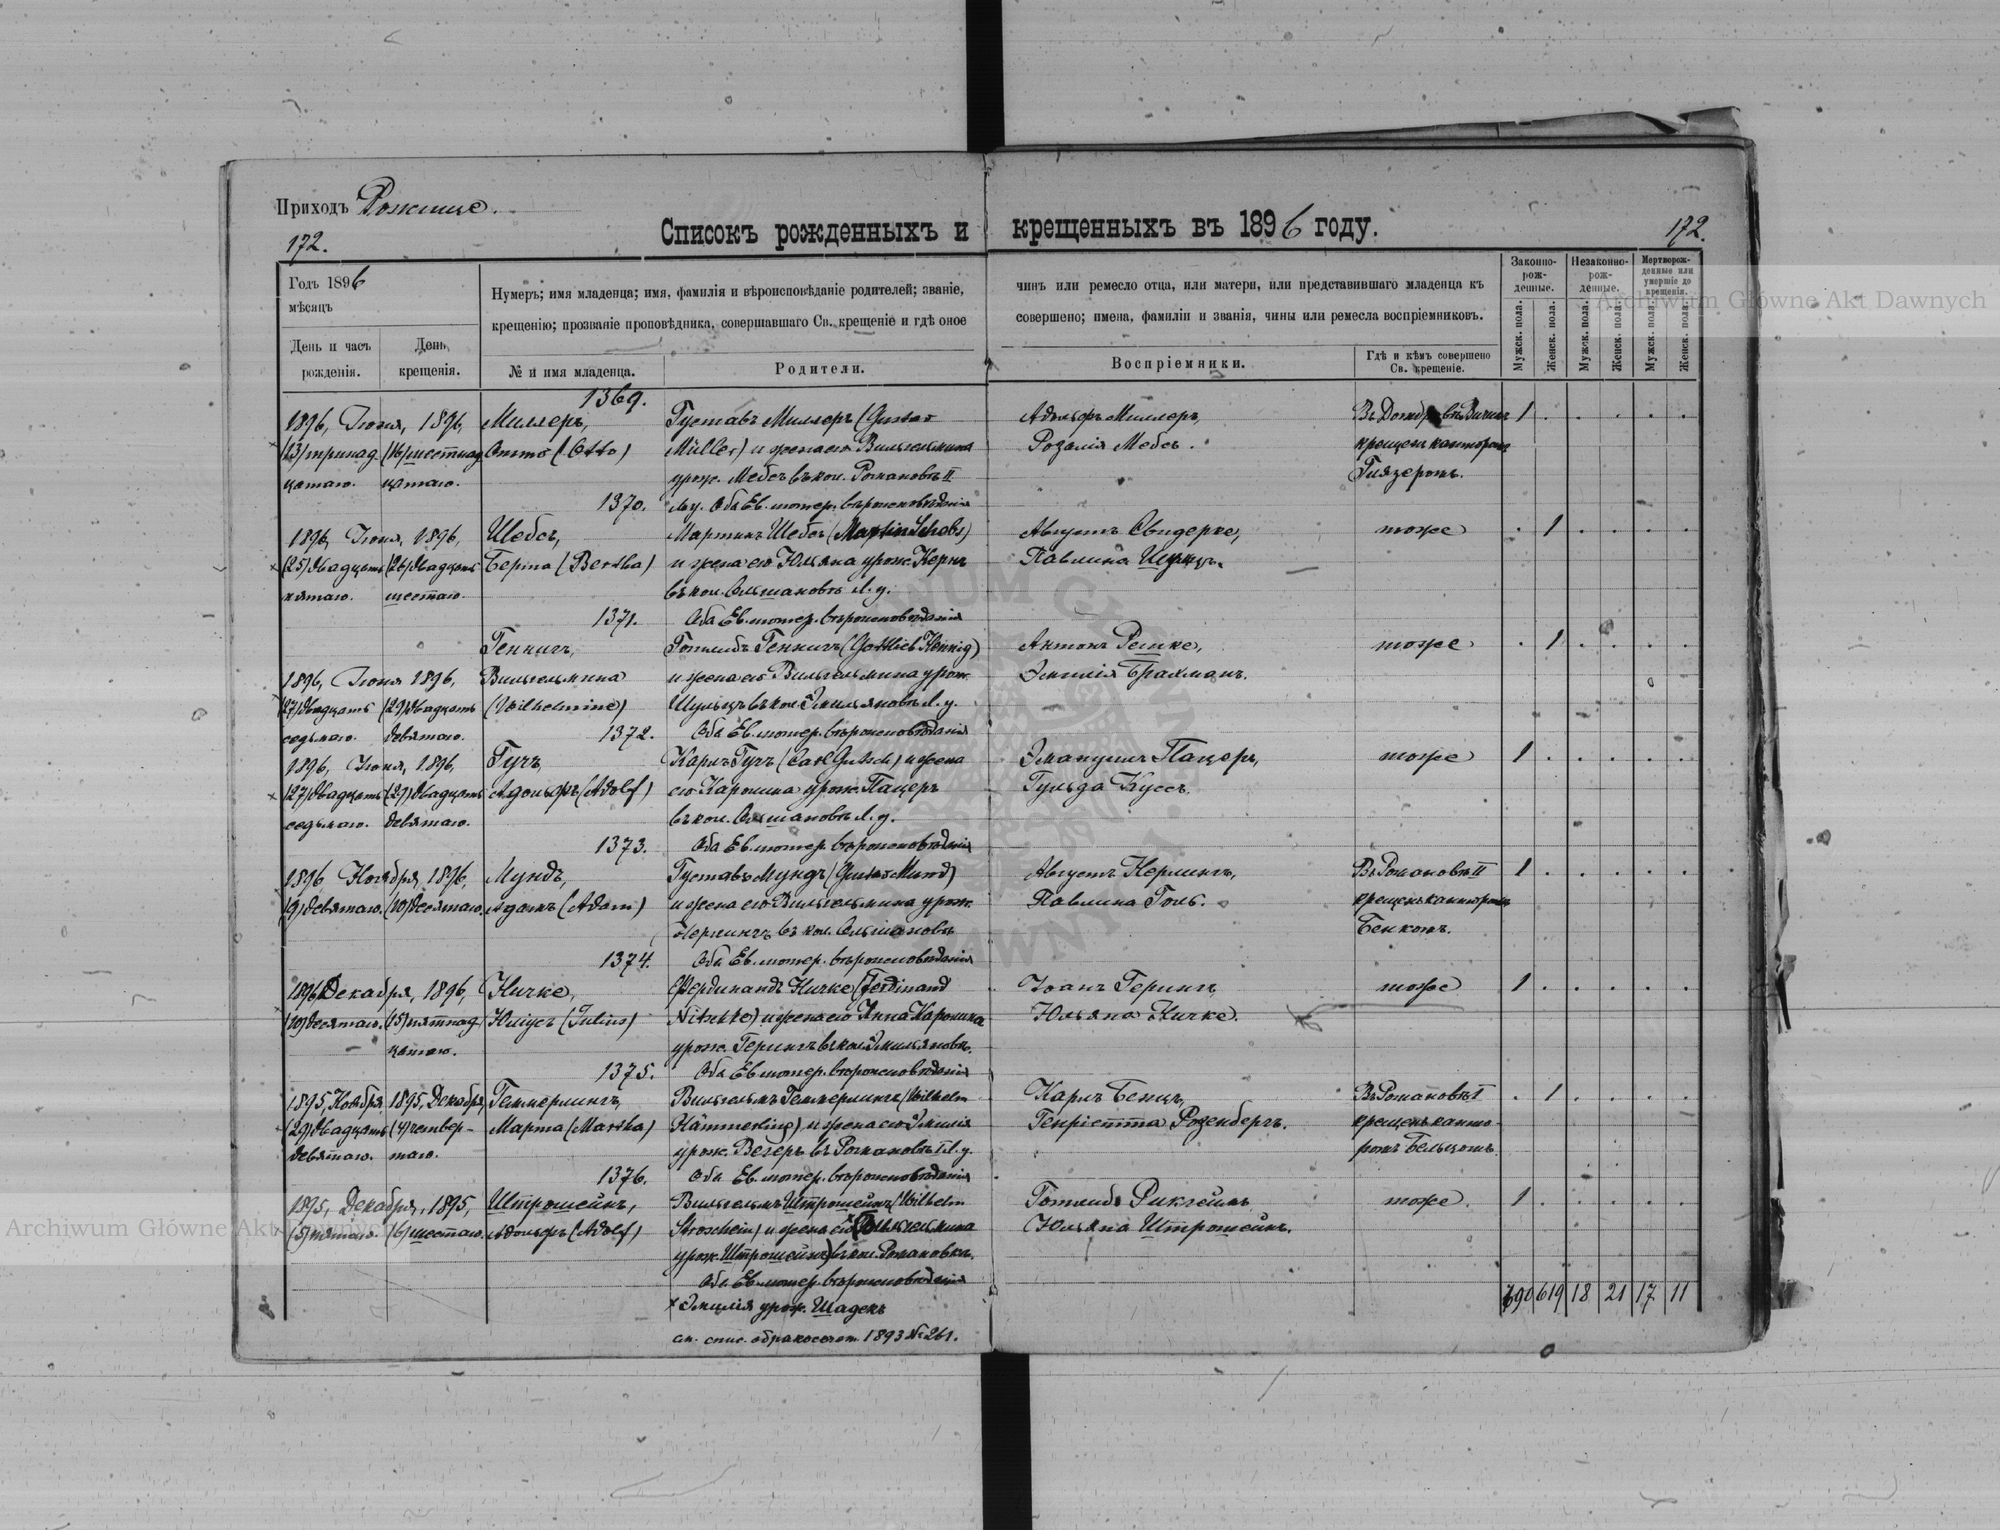 Приходъ Рожище.
172.
Списокъ рожденныхъ и крещенныхъ въ 1896 году.
172.
Годъ 1896
мѣсяцъ
День и часъ рожденія.
День крещенія.
Нумеръ; имя младенца; имя, фамилія и вѣроисповѣданіе родителей; званіе, чинъ или ремесло отца, или матери, или представившаго младенца къ
крещенію; прозваніе проповѣдника, совершавшаго Св. крещеніе и гдѣ оное совершено; имена, фамиліи и званія, чины или ремесла воспріемниковъ.
№ и имя младенца.
Родители.
Воспріемники.
Гдѣ и кѣмъ совершено Св. крещеніе.
Законно-рож-денные.
Незаконно-рож-денные.
Мертворож-денные или умершіе до крещенія.
Мужск. пола. Женск. пола. Мужск. пола. Женск. пола. Мужск. пола. Женск. пола.
1369.
1896, Іюня, 1896, Миллеръ, Густавъ Миллеръ (Gustav Адольфъ Миллеръ, 1 . . . . .
(13) тринад (16) шестнад Отто (Otto) Müller) и жена его Вильгельмина Розалія Мебсъ. крещенъ канторомъ
цатаго. цатаго. урож. Мебсъ въ кол. Романовъ II Глязеромъ.
1370. Оба Ев. лютер. вѣроисповѣданія
1896, Іюня, 1896, Шебсъ, Мартинъ Шебсъ (Martin Schebs) Августъ Свидерке, тоже . 1 . . . .
(25) двадцать (26) двадцать Берта (Bertha) и жена его Юльяна урож. Кернъ Павлина
пятаго. шестаго. въ кол. Ольшановъ Л. у.
1371. Оба Ев. лютер. вѣроисповѣданія
Геннигъ, Готлибъ Геннигъ (Gottlieb Hennig) Антонъ Решке, тоже . 1 . . . .
1896, Іюня 1896, Вильгельмина и жена его Вильгельмина урож. Эмилія Брахманъ.
(27) двадцать (29) двадцать (Wilhelmine) Шульцъ въ кол. Эмильяновъ Л. у.
седьмаго. девятаго. 1372. Оба Ев. лютер. вѣроисповѣданія
1896, Іюня, 1896, Гучъ, Карлъ Гучъ (Carl Gutsch) и жена Эмануилъ Пацеръ, тоже 1 . . . . .
(27) двадцать (29) двадцать Адольфъ (Adolf) его Каролина урож. Пацеръ Гульда Куссъ.
седьмаго. девятаго. въ кол. Ольшановъ Л. у.
1373. Оба Ев. лютер. вѣроисповѣданія
1896 Ноября, 1896, Мундъ, Густавъ Мундъ (Gustav Mund) Августъ Герлингъ, Въ Романовъ II 1 . . . . .
(9) девятаго. (10) десятаго Адамъ (Adam) и жена его Вильгельмина урож. Павлина Голь. крещенъ канторомъ
въ кол. Ольшановъ Бенкомъ.
1374. Оба Ев. лютер. вѣроисповѣданія
1896 Декабря, 1896, Ничке, Фердинандъ Ничке (Ferdinand Іоанъ Герингъ, тоже 1 . . . . .
(10) десятаго. (15) пятнад Юліусъ (Julius) Nitschke) и жена его Анна Каролина Юльяна Ничке.
цатаго. урож. Герингъ въ кол. Эмильяновъ.
1375. Оба Ев. лютер. вѣроисповѣданія
1895, Ноября 1895, Декабря, Геммерлингъ, Вильгельмъ Геммерлингъ (Wilhelm Карлъ Бенцъ, Въ Романовъ I . 1 . . . .
(29) двадцать (4) четвер- Марта (Martha) Hämmerling) и жена его Эмилія Генріетта Розенбергъ. крещенъ канто-
девятаго. таго. урож. Вегеръ въ Романовъ I Л. у. ромъ Бельцомъ.
1376. Оба Ев. лютер. вѣроисповѣданія
1895, Декабря, 1895, Штрошейнъ, Вильгельмъ Штрошейнъ (Wilhelm Готлибъ тоже. 1 . . . . .
(5) пятаго. (6) шестаго. Адольфъ (Adolf) Stroschein) и жена его Вильгельмина Юльяна Штрошейнъ.
урож. Штрошейнъ) въ кол. Романовъ.
Оба Ев. лютер. вѣроисповѣданія
690 619 18 21 17 11
× Эмилія урож. Шаденъ
см. спис. о бракосочет. 1893 № 261.
Archiwum Główne Akt Dawnych
Archiwum Główne Akt Dawnych